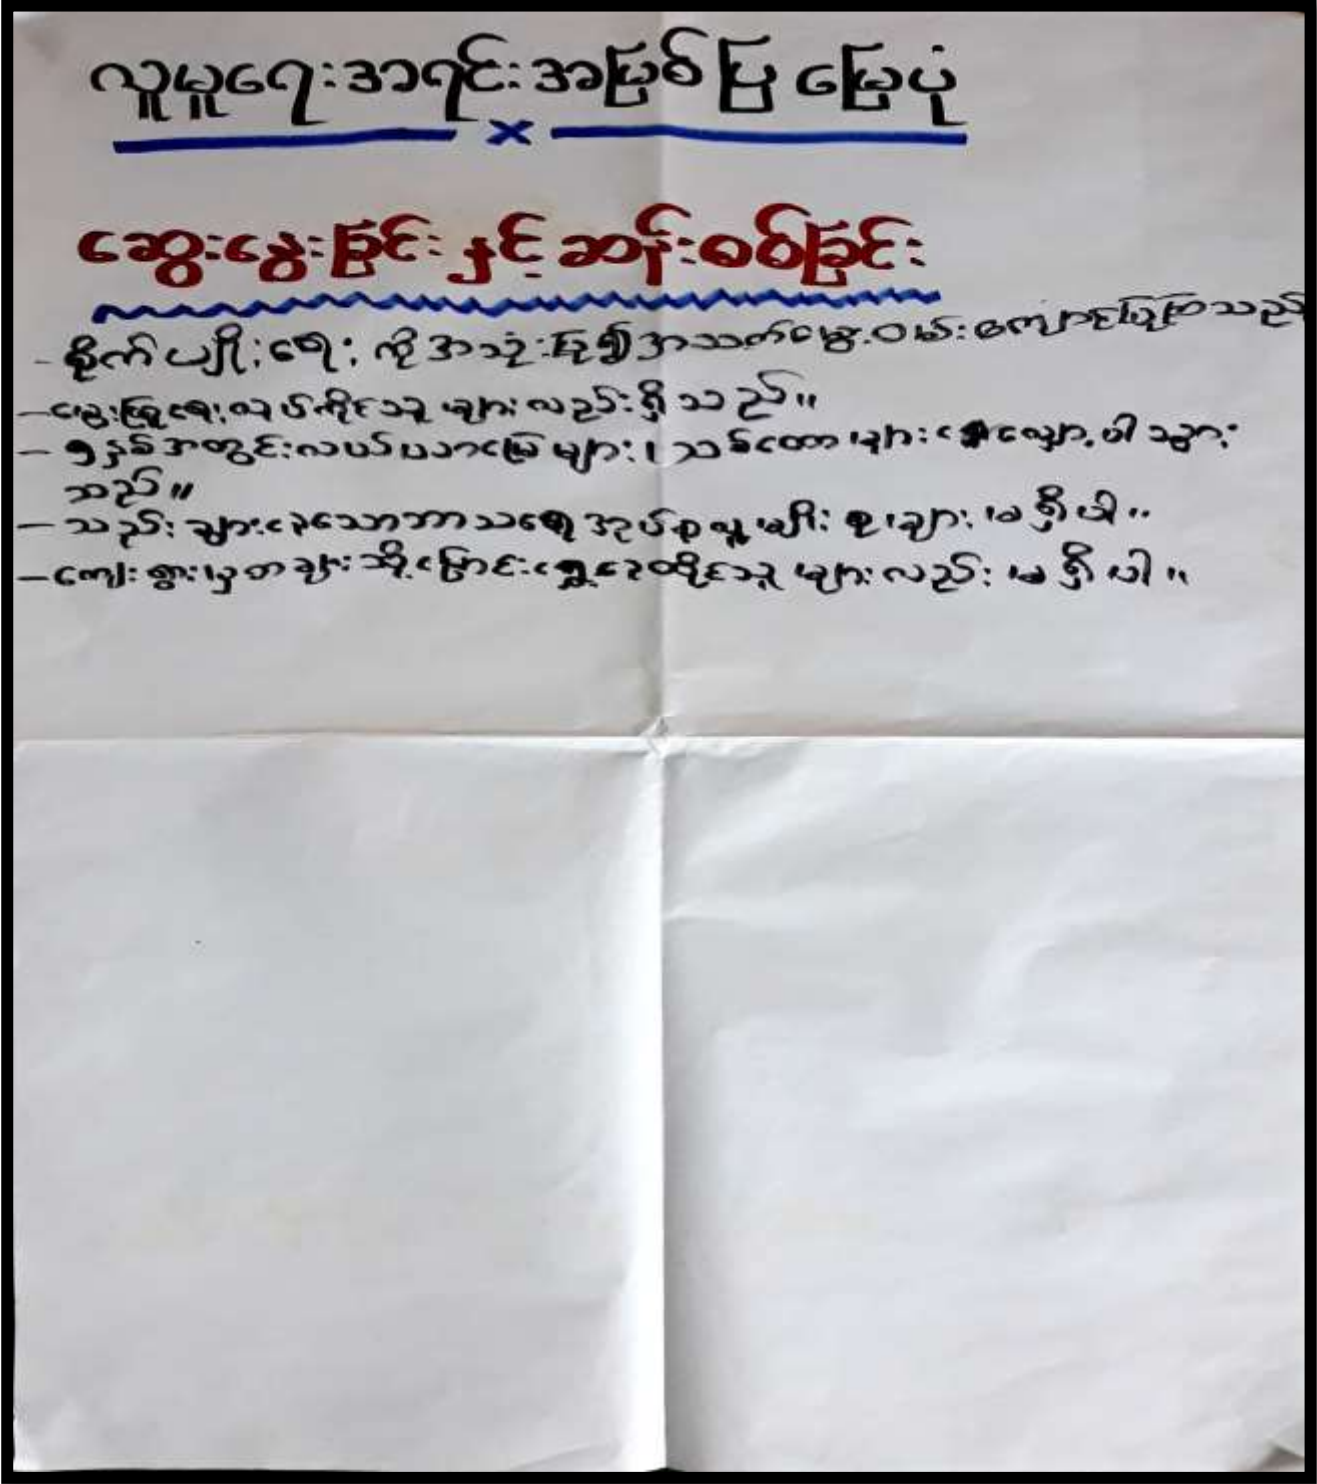 လူမှုရေးအရင်းအမြစ်ပြ မြေပုံ
ဆွေးနွေးခြင်းနှင့် ဆန်းစစ်ခြင်း
- စိုက်ပျိုးရေး ကိုအသုံးပြု၍အသက်မွေးဝမ်းကျောင်းပြုကြသည်
- မွေးမြူရေးလုပ်ကိုင်သူများလည်းရှိသည်။
- ၅နှစ်အတွင်းလယ်ယာမြေများ၊ သစ်တောများ လျော့ပါးသွား
သည်။
- သည်းခြားနေသောဘာသာရေးအုပ်စုလူမျိုးစုများမရှိပါ။
- ကျေးရွားမှတခြားသို့ပြောင်းရွှေ့နေထိုင်သူများလည်းမရှိပါ။